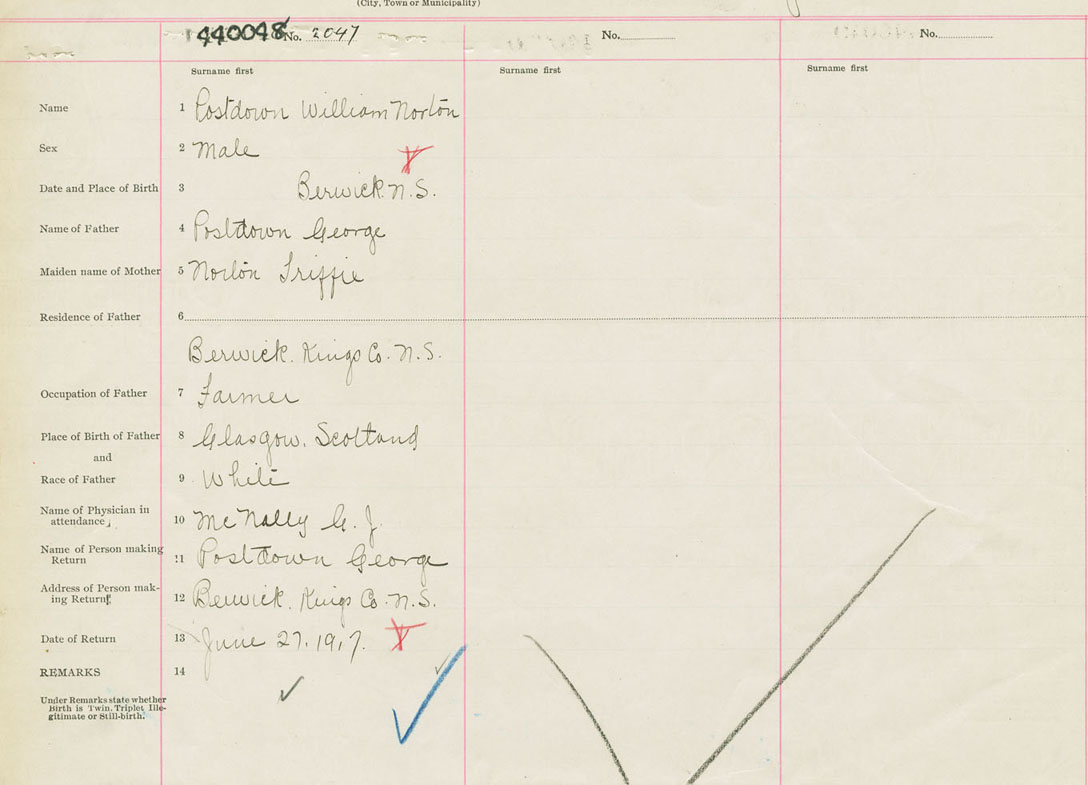 (City, Town or Municipality)
440048 No. 2047 No. No.
Surname first Surname first Surname first
Name 1 Postdown William Norton
Sex 2 Male
Date and Place of Birth 3 Berwick. N.S.
Name of Father 4 Postdown George
Maiden name of Mother 5 Norton Triffie
Residence of Father 6
Berwick. Kings Co. N.S.
Occupation of Father 7 Farmer
Place of Birth of Father 8 Glasgow. Scotland
and
Race of Father 9 White
Name of Physician in
attendance 10 McNally G. J.
Name of Person making
Return 11 Postdown George
Address of Person mak-
ing Return 12 Berwick. Kings Co. N.S.
Date of Return 13 June 27. 1917.
REMARKS 14
Under Remarks state whether
Birth is Twin, Triplet, Ille-
gitimate or Still-birth.